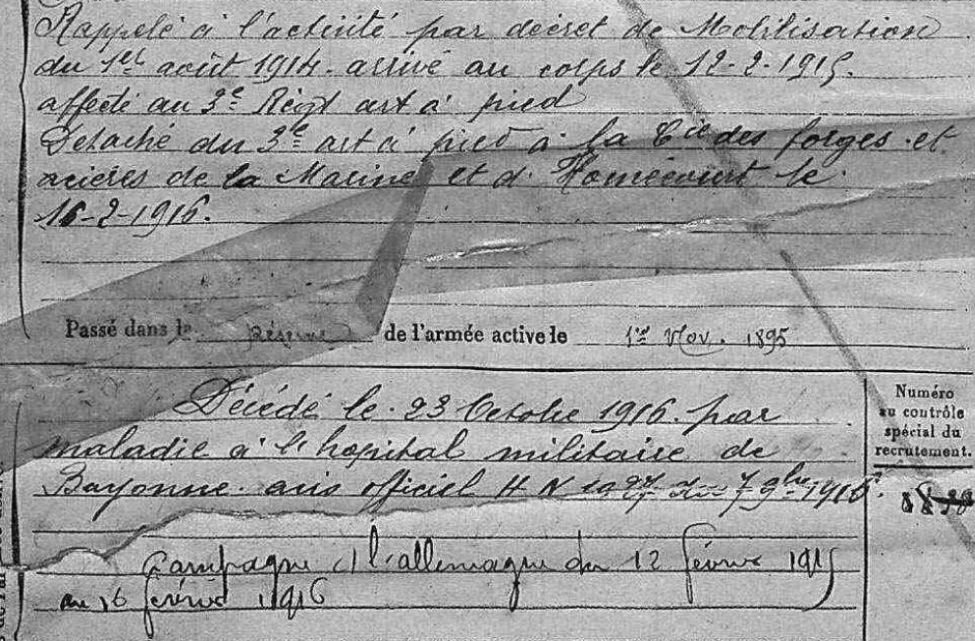 Rappelé à l'activité par décret de Mobilisation
du 1er août 1914. arrivé au corps le 12-2-1915.
affecté au 3e Régt art à pied
Détaché du 3e art à pied à la Cie des forges et
aciéres de la Marine et d'Homécourt le
16-2-1916.
Passé dans la réserve de l'armée active le 1er Nov. 1895
Numéro
au contrôle
spécial du
recrutement.
Décédé le 23 Octobre 1916 par
maladie à l'hopital militaire de
Bayonne. avis officiel H N du 7 9bre 1916
Campagne c/ l'allemagne du 12 février 1915
au 16 février 1916